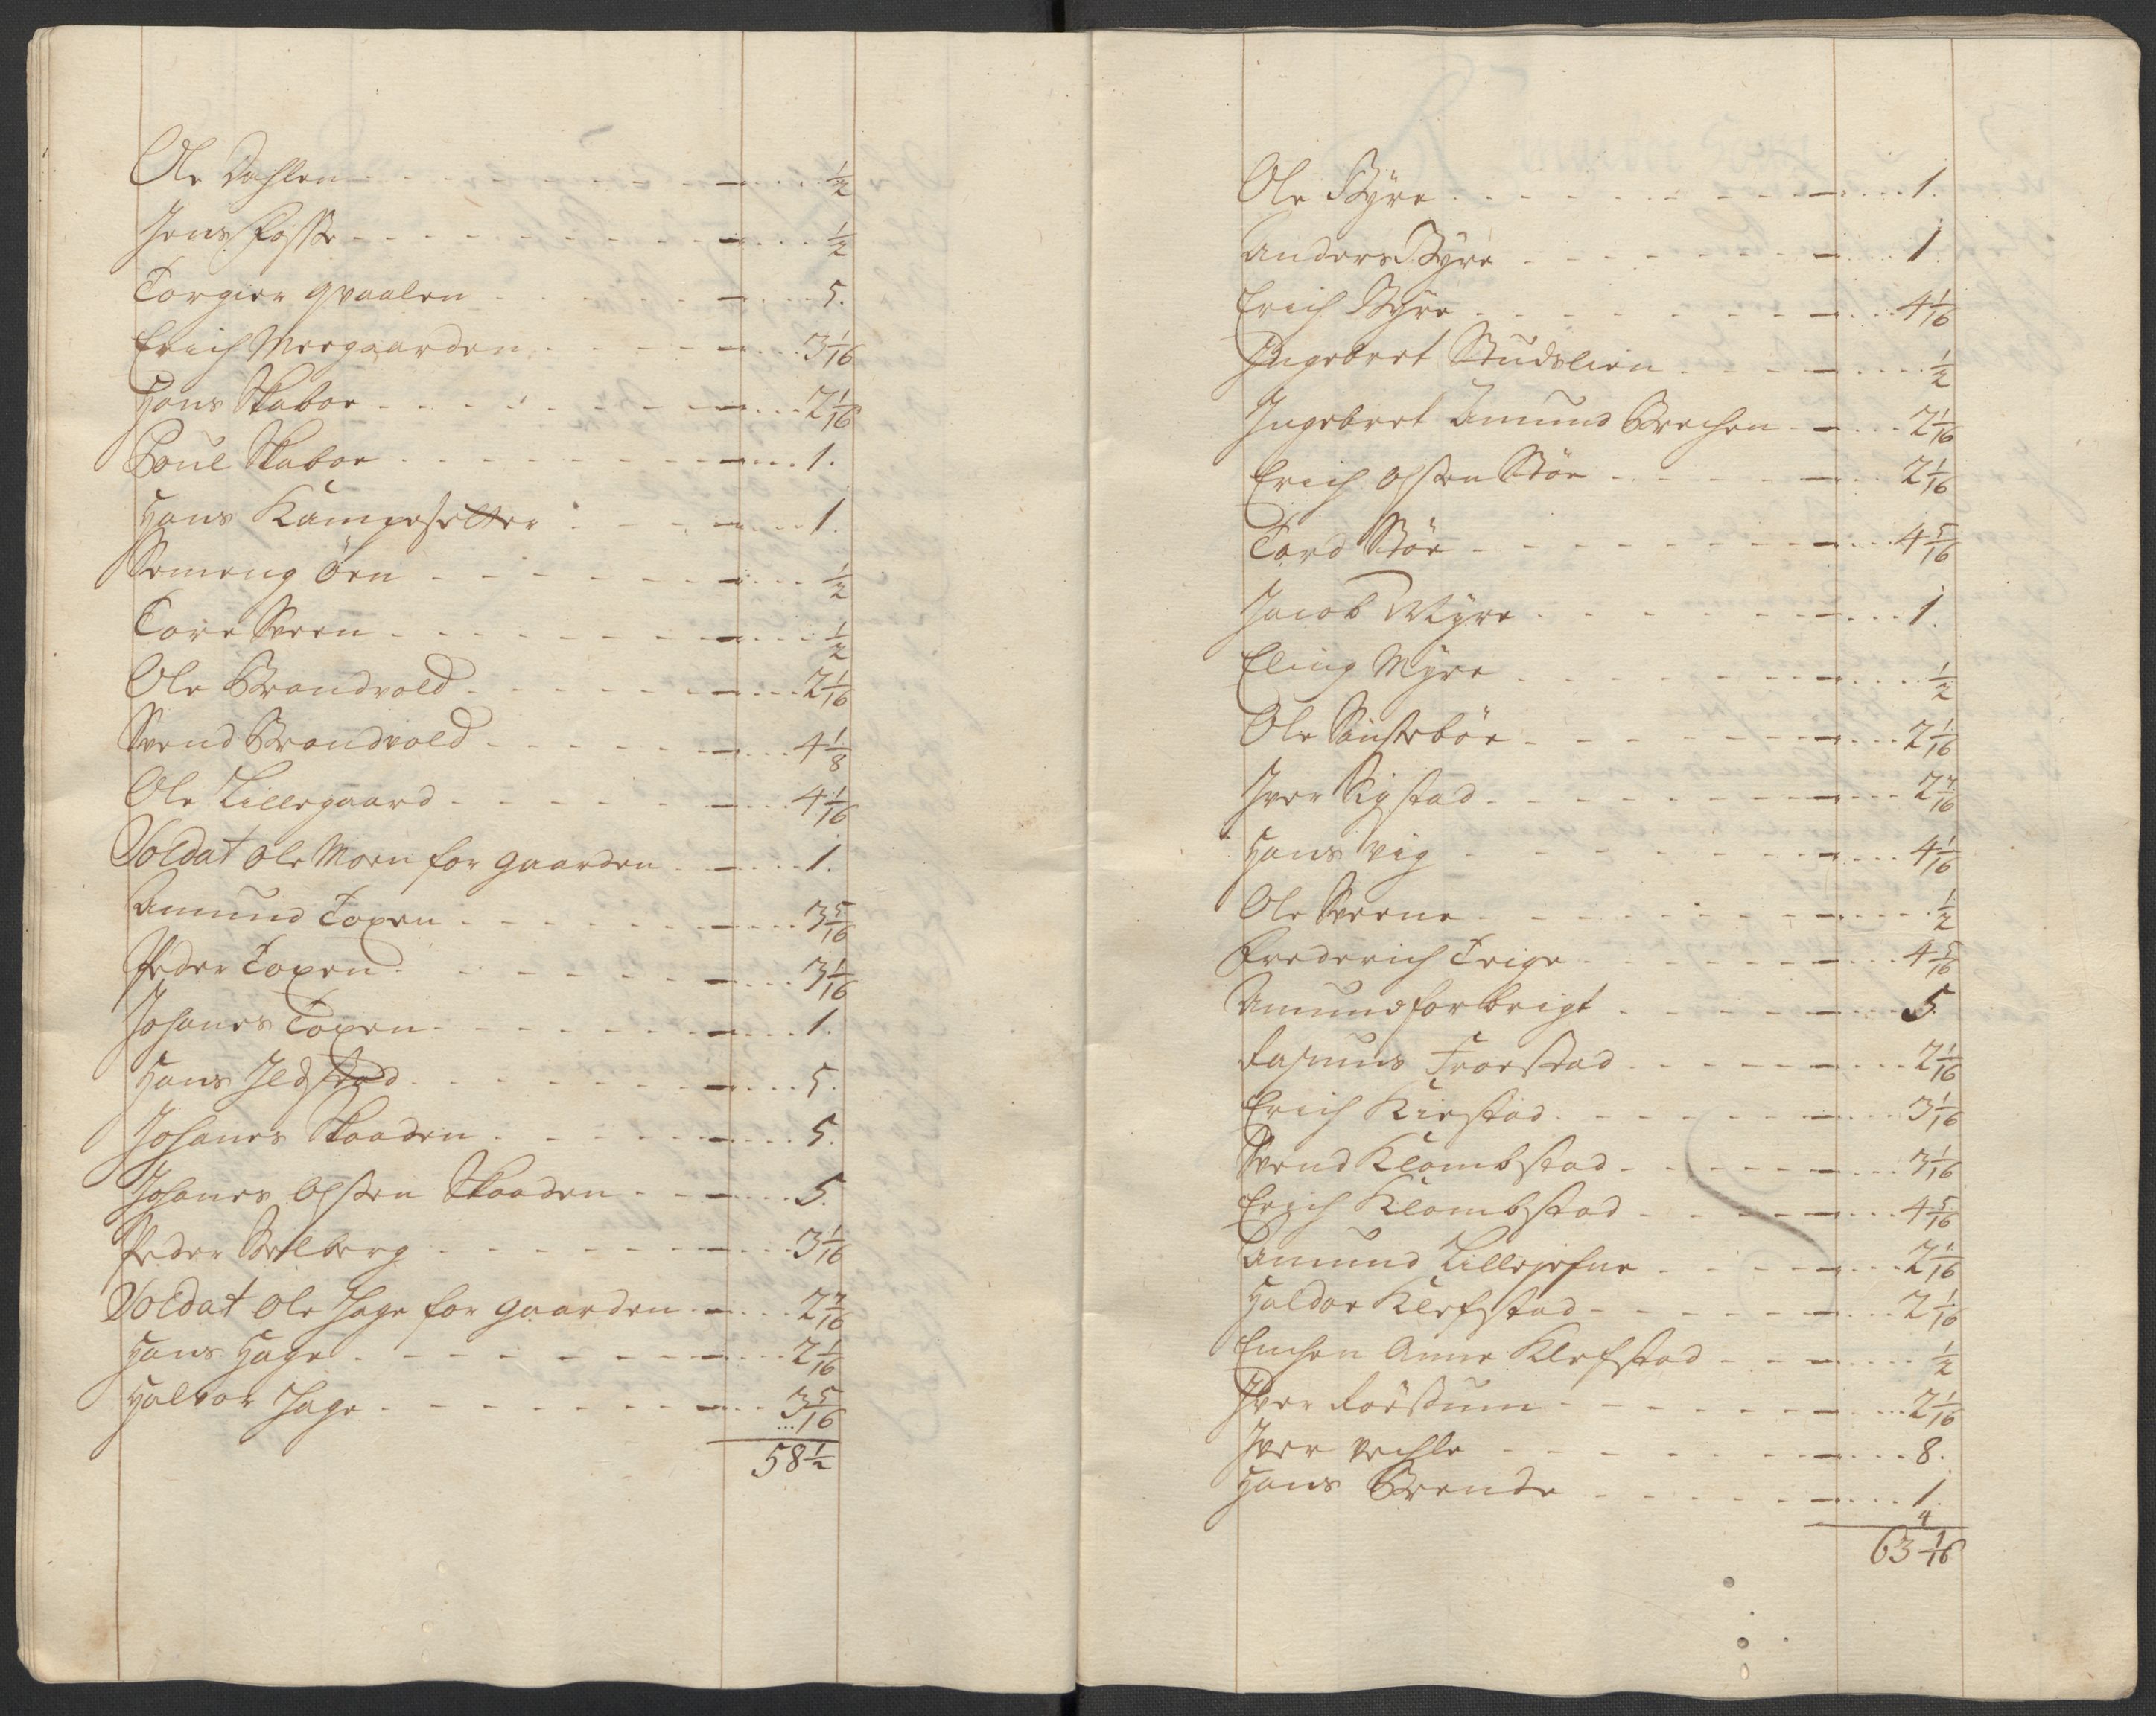 Ole Dahlen - - - ½
Jens Fosse - - - ½
Torgier Qvaalen - - - 5.
Erich Moegaarden - - - 3 1/16
Hans Skaboe - - - 2 1/16
Poul Skaboe - - - 1.
Hans Kampesetter - - - 1.
Semeng Öen - - - ½
Tore Sveen - - - ½
Ole Brandvold - - - 2 1/16
Svend Brandvold - - - 4 1/8
Ole Lillegaard - - - 4 1/16
Soldat Ole Moen for gaarden - - - 1.
Amund Toxen - - - 3 5/16
Peder Toxen - - - 3 1/16
Johanes Toxen - - - 1.
Hans Jldstad - - - 5.
Johanes Skaaden - - - 5.
Johanes Olsen Skaaden - - - 5.
Peder Selberg - - - 3 1/16
Soldat Ole Hage for gaarden - - - 2
Hans Hage - - - 2 1/16
Halvor Hage - - - 3 5/16
58 ½
Ole Byre - - - 1.
Anders Byre - - - 1.
Erich Byre - - - 4 1/16
Ingebret Studslien - - - ½
Ingebret Amund Brechen - - - 2 1/16
Erich Olsen Böe - - - 2 1/16
Tord Böe - - - 4 5/16
Jacob Myre - - - 1.
Eling Myre - - - ½
Ole Sønsteböe - - - 2 1/16
Iver Rigstad - - - 2
Hans Vig - - - 4 1/16
Ole Sveene - - - ½
Frederich Teige - - - 4 5/16
Amund forbrigt - - - 5
Rasmus Froestad - - - 2 1/16
Erich Kiestad - - - 3 1/16
Svend Klombstad - - - 3 1/16
Erich Klombstad - - - 4 5/16
Amund Lillejefne - - - 2 1/16
Haldor Klefstad - - - 2 1/16
Enchen Anne Klefstad - - - ½
Iver Foössum - - - 2 1/16
Iver Vehle - - - 8.
Hans Brende - - - 1.
63 1/16